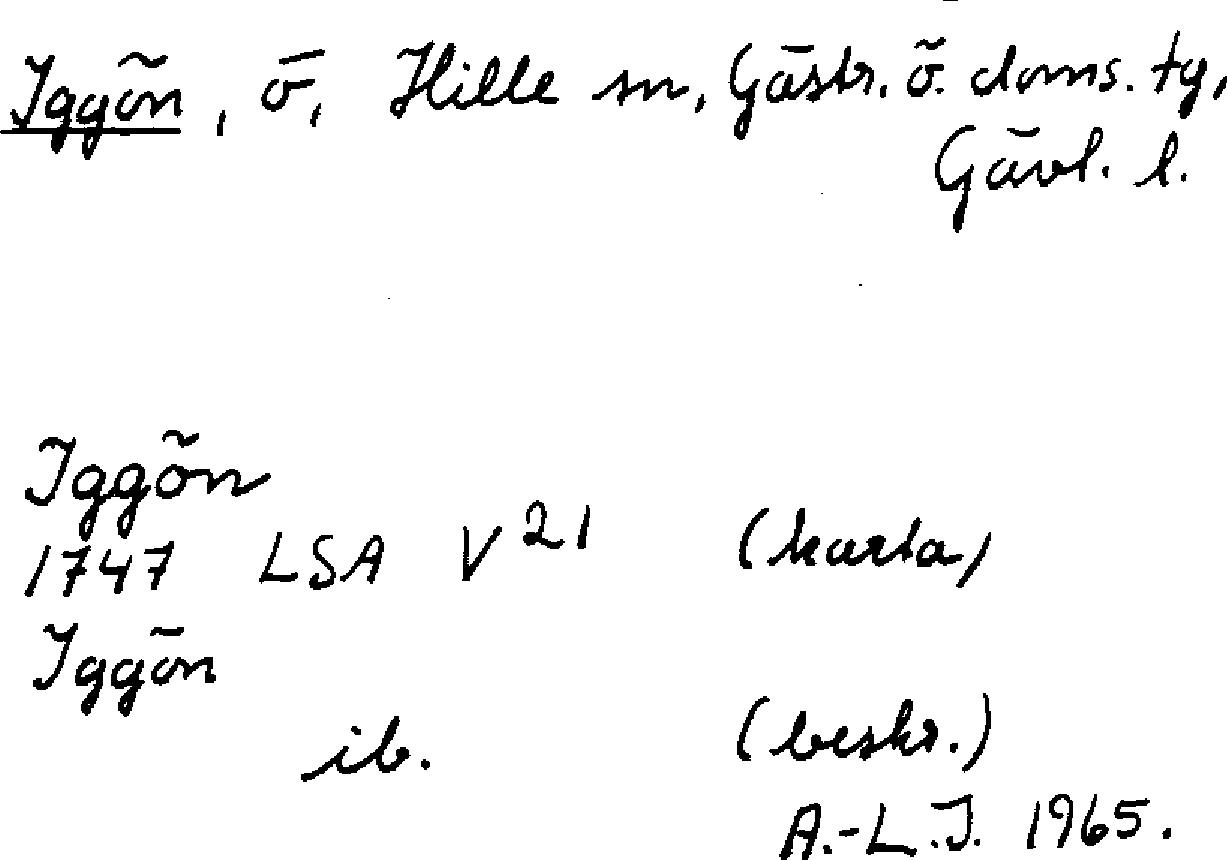 Iggön, ö, Hille sn, Gästr. ö. doms. tg,
Gävl. l.
Iggön
1747 LSA V 21 (karta)
Iggön
ib. (beskr.)
A.-L.J. 1965.